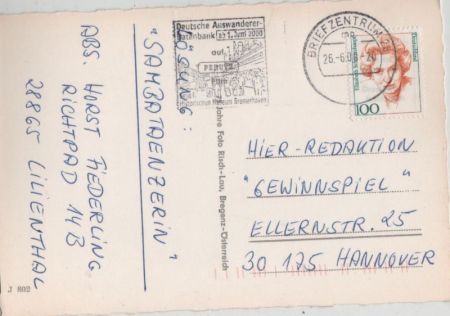 Deutsche Auswanderer-
datenbank ab 1. Juni 2000
auf
Historischen Museum Bremerhaven
BRIEFZENTRUM 28
mn
26.-6.00-20
100
LÖSUNG:
"SAMBATAENZERIN"
ABS. HORST FIEDERLING
RICHTPAD 14B
28865 LILIENTHAL
Jahre Foto Risch-Lau, Bregenz-Österreich
HIER-REDAKTION
"GEWINNSPIEL"
ELLERNSTR. 25
30 175 HANNOVER
J 802